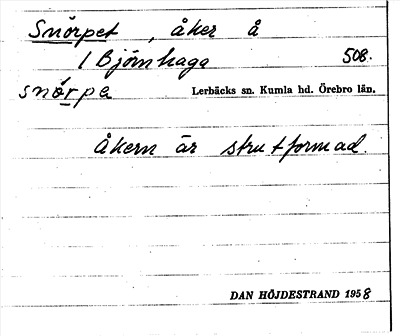 Snörpet, åker å
1 Björnhaga 508.
snö́rpa Lerbäcks sn. Kumla hd. Örebro län.
Åkern är strutformad.
DAN HÖJDESTRAND 1958